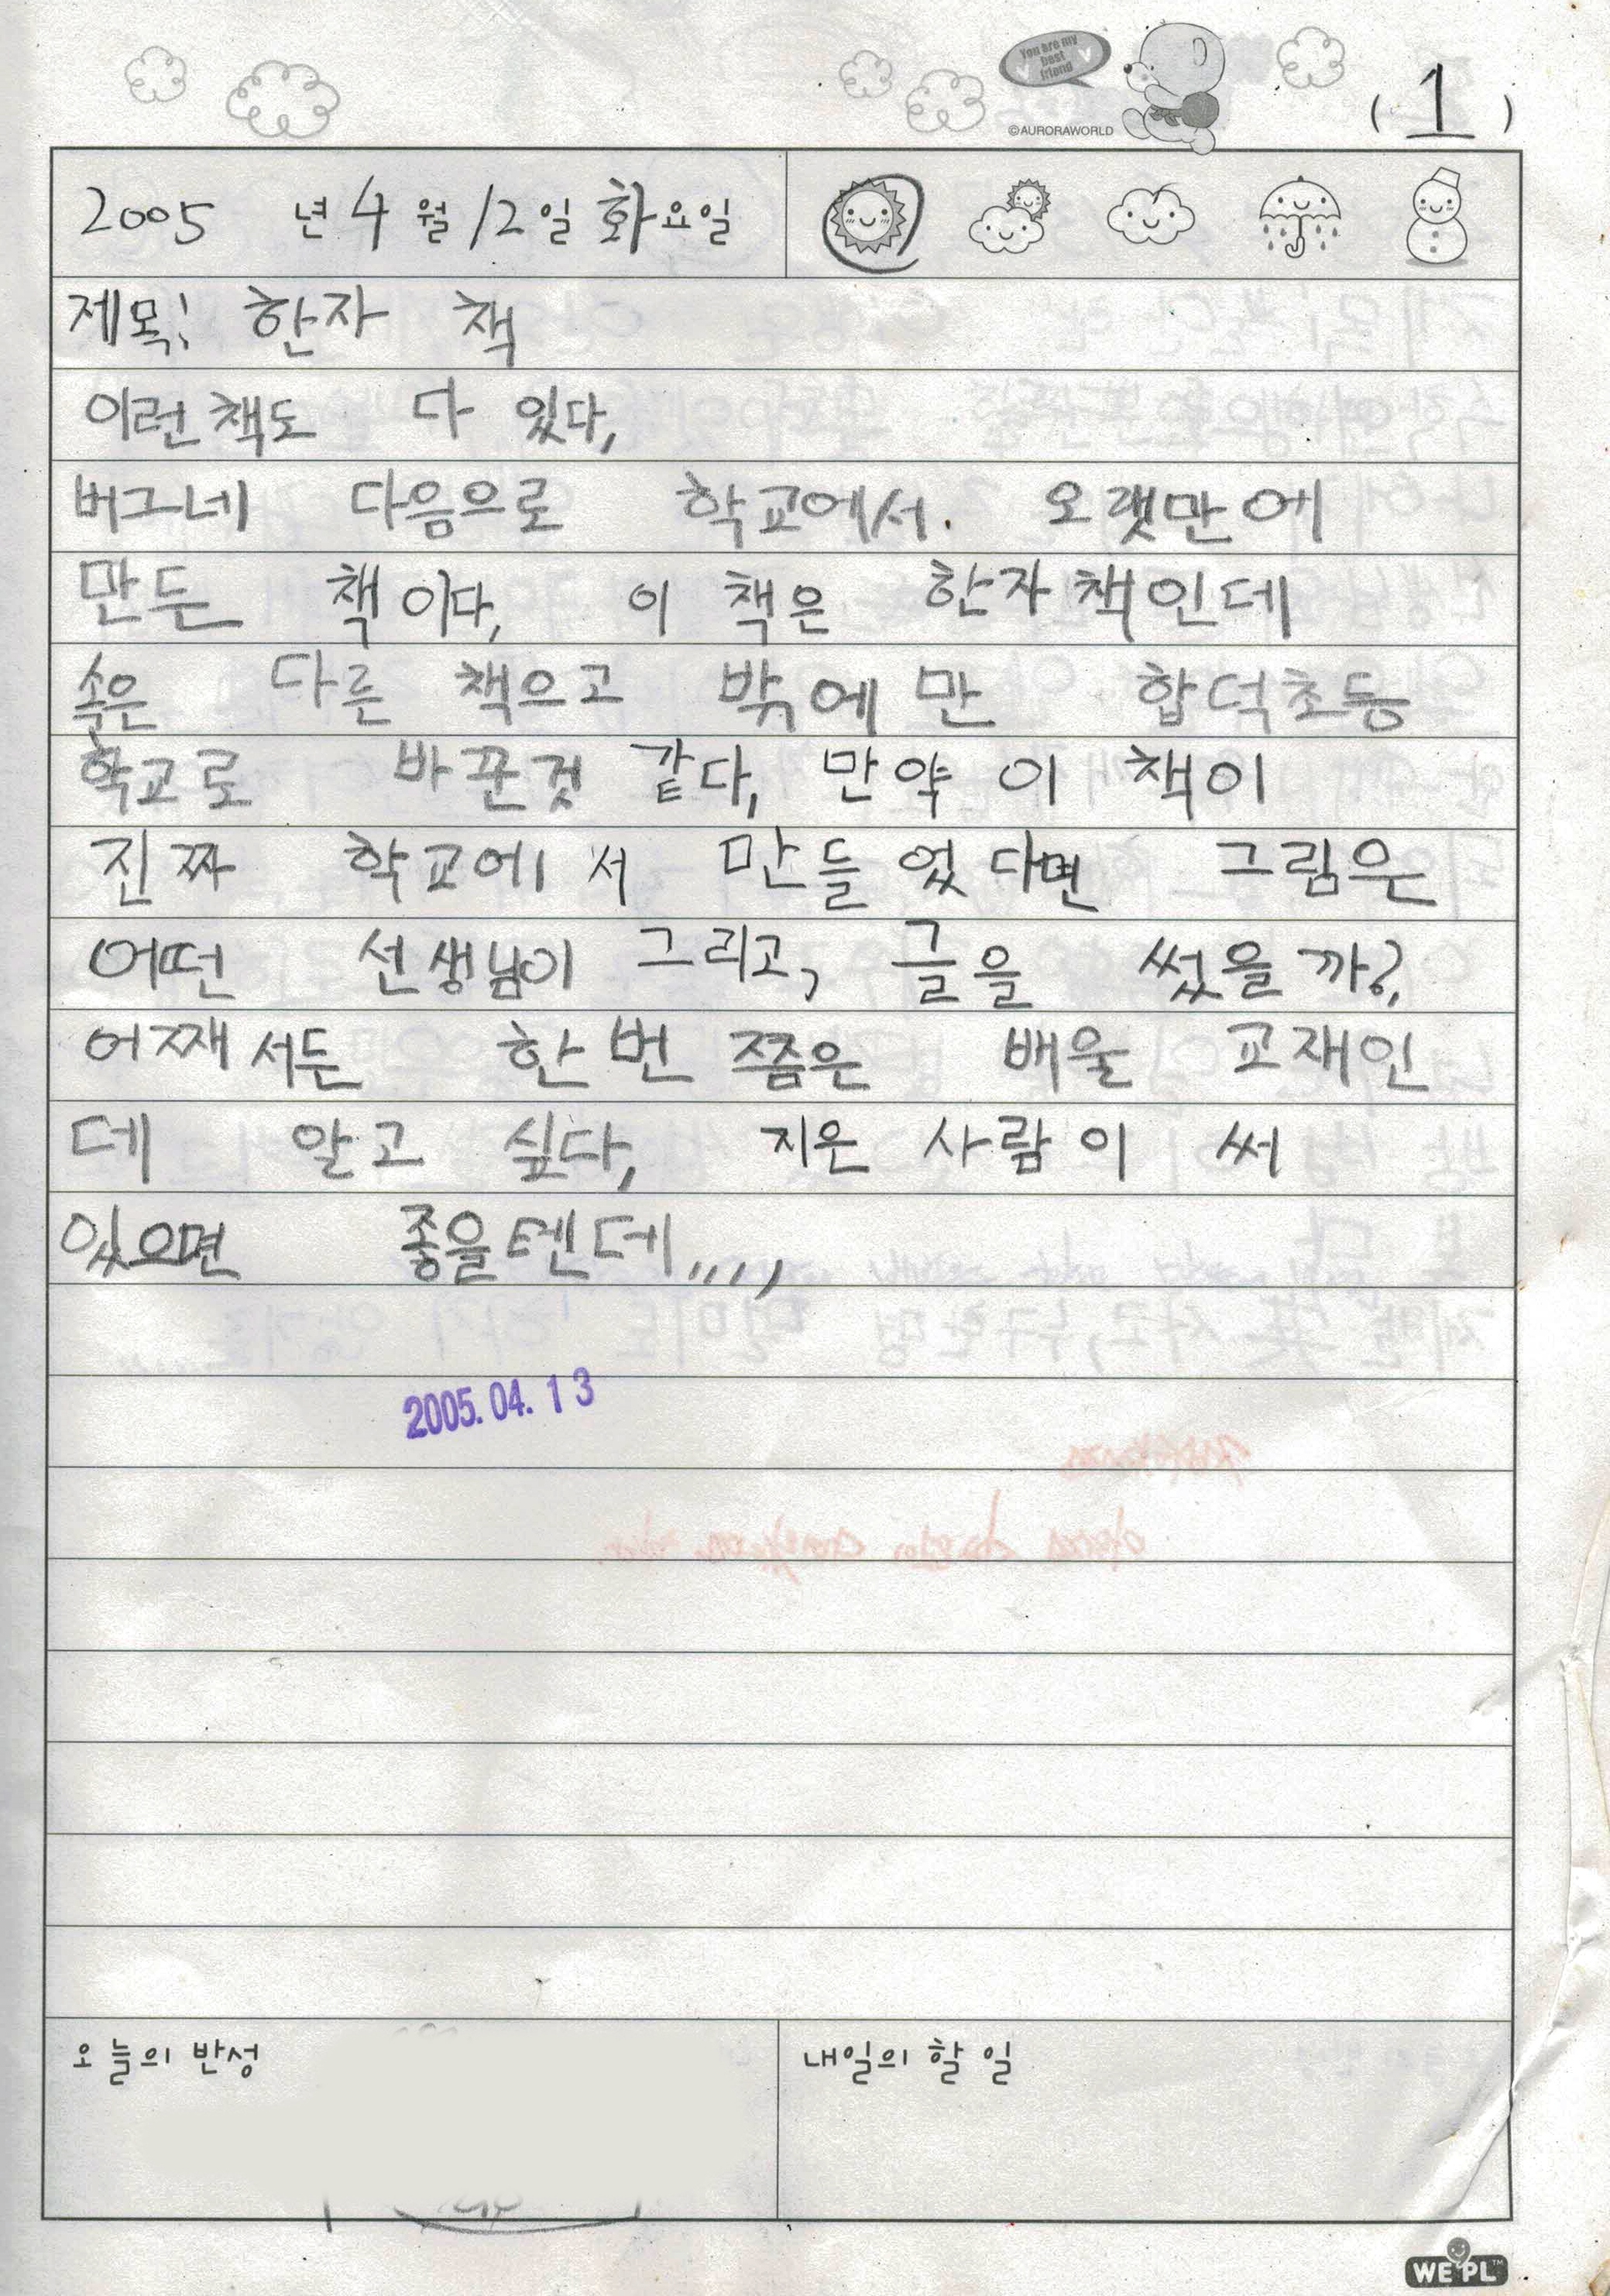 You are my
best
friend
©AURORAWORLD
( 1 )
2005 년 4 월 12 일 화요일
제목: 한자 책
이런 책도 다 있다.
버그네 다음으로 학교에서. 오랫만에
만든 책이다. 이 책은 한자책인데
속은 다른 책으고 밖에만 합덕초등
학교로 바꾼것 같다. 만약 이 책이
진짜 학교에서 만들었다면 그림은
어떤 선생님이 그리고, 글을 썼을까?
어째서든 한번 쯤은 배울 교재인
데 알고 싶다. 지은 사람이 써
있으면 좋을텐데....,
2005.04.13
오늘의 반성
내일의 할 일
WE PL™